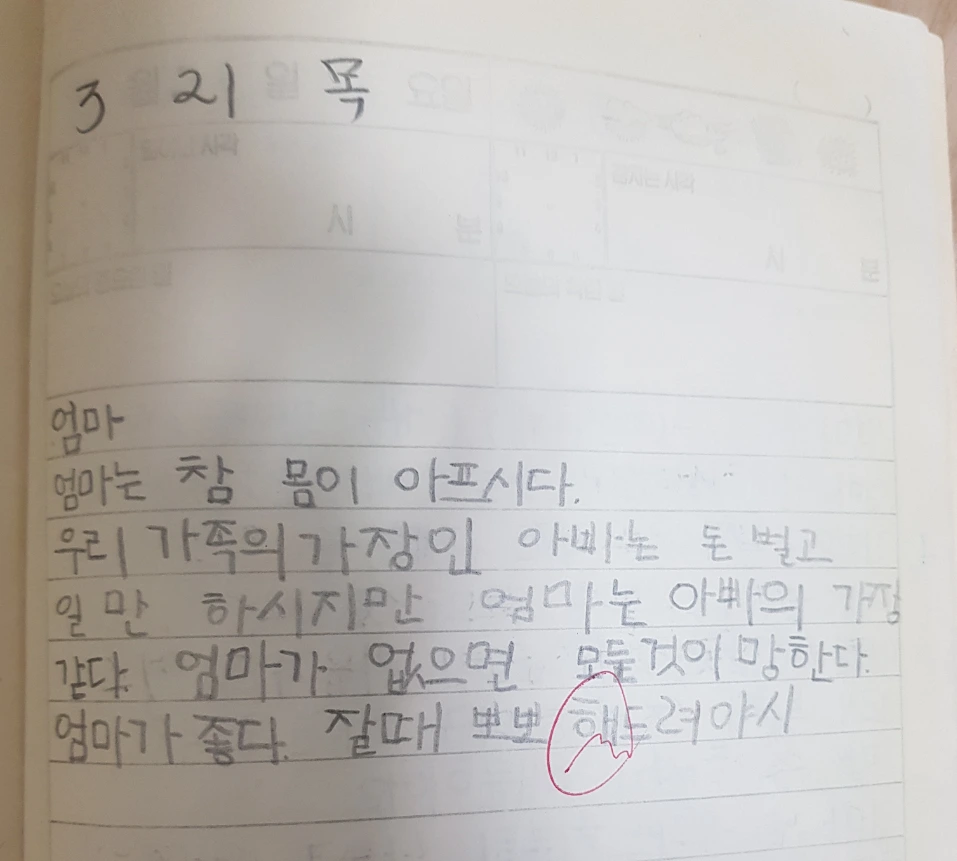 3 21 목
엄마
엄마는 참 몸이 아프시다.
우리 가족의 가장인 아빠는 돈 벌고
일만 하시지만 엄마는 아빠의 가장
같다. 엄마가 없으면 모든것이 망한다.
엄마가 좋다. 잘때 뽀뽀 해드려야시